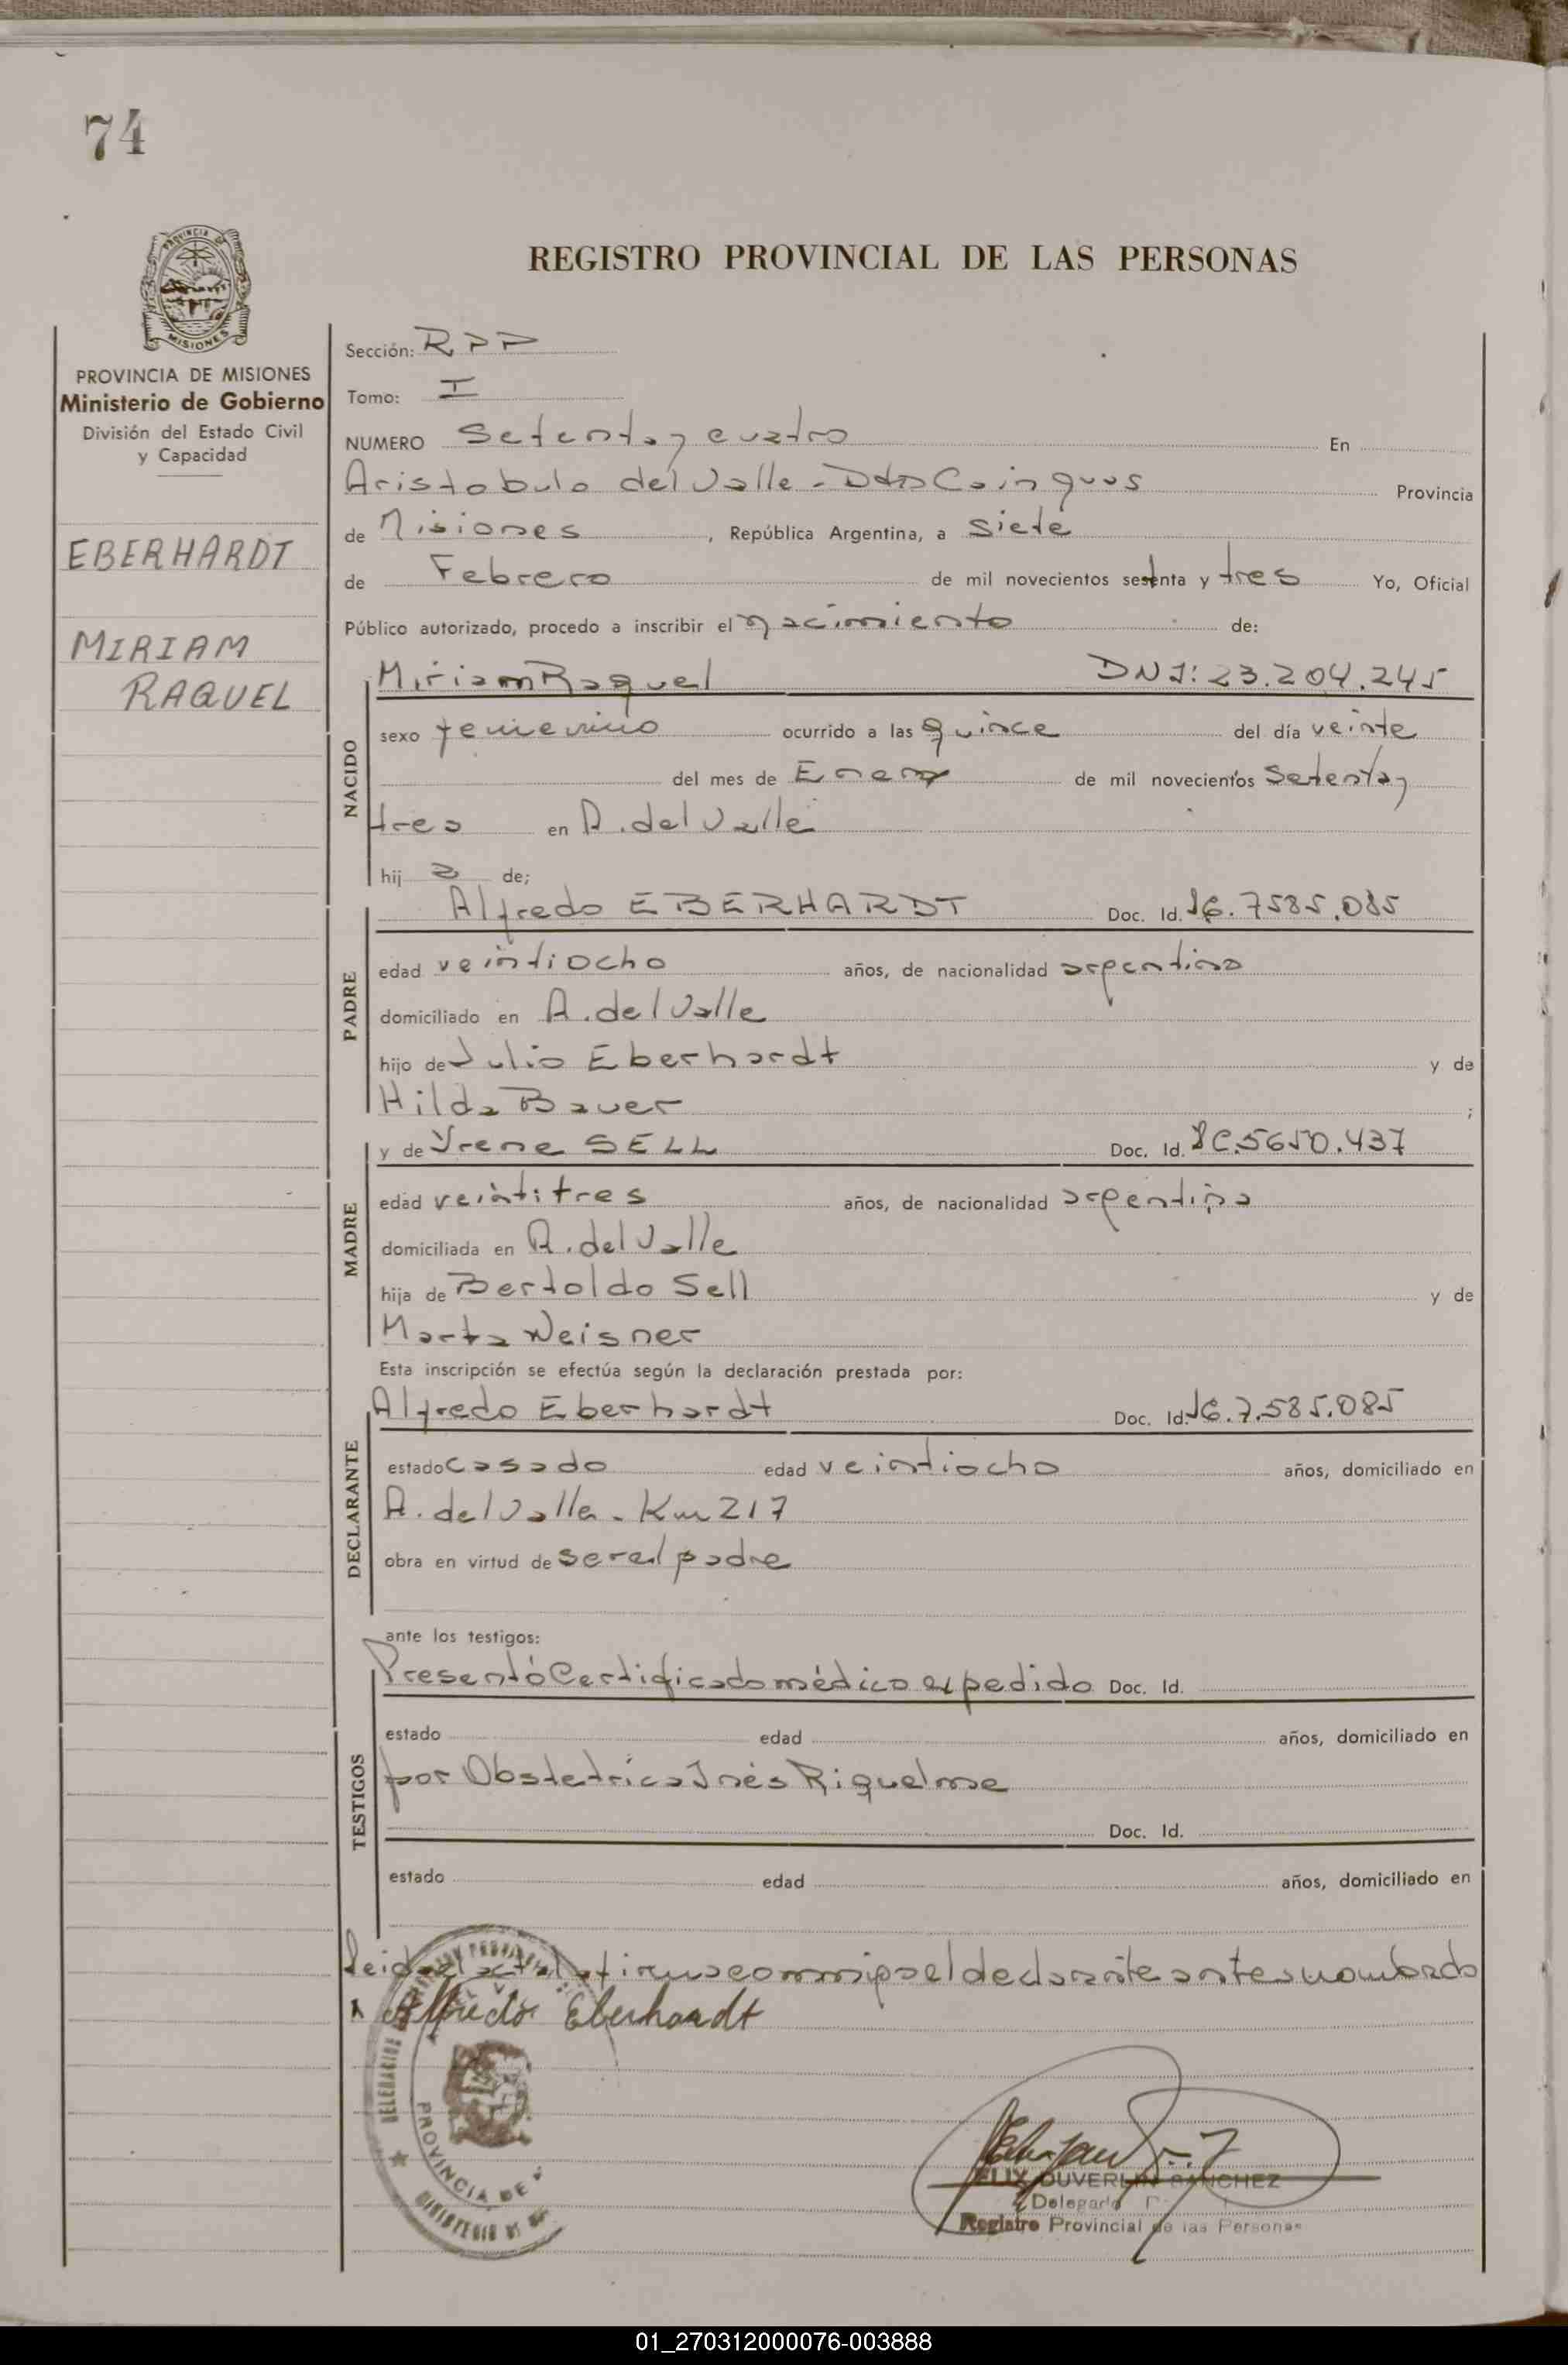 74
REGISTRO PROVINCIAL DE LAS PERSONAS
PROVINCIA
MISIONES
PROVINCIA DE MISIONES
Ministerio de Gobierno
División del Estado Civil
y Capacidad
EBERHARDT
MIRIAM
RAQUEL
Sección: RPP
Tomo: I
NUMERO Setenta y cuatro En
Aristobulo del Valle - Dto Cainguas Provincia
de Misiones, República Argentina, a Siete
de Febrero de mil novecientos setenta y tres Yo, Oficial
Público autorizado, procedo a inscribir el nacimiento de:
Miriam Raquel DNI: 23.204.245
NACIDO
sexo femenino ocurrido a las quince del día veinte
del mes de Enero de mil novecientos Setenta y
tres en A. del Valle
hij a de;
PADRE
Alfredo EBERHARDT Doc. Id. 7585.085
edad veintiocho años, de nacionalidad argentino
domiciliado en A. del Valle
hijo de Julio Eberhardt y de
Hilda Bauer ;
y de Yrene SELL Doc. Id. 5650.437
MADRE
edad veintitres años, de nacionalidad argentina
domiciliada en A. del Valle
hija de Bertoldo Sell y de
Marta Weisner
Esta inscripción se efectúa según la declaración prestada por:
DECLARANTE
Alfredo Eberhardt Doc. Id. 7.585.085
estado casado edad veintiocho años, domiciliado en
A. del Valle - Km 217
obra en virtud de ser el padre
ante los testigos:
TESTIGOS
Presentó Certificado médico expedido Doc. Id.
estado edad años, domiciliado en
por Obstetrica Inés Riquelme
Doc. Id.
estado edad años, domiciliado en
Leida el acta la firma conmigo el declarante antes nombrado
Alfredo Eberhardt
PROVINCIA DE
FELIX DUVERLIN SANCHEZ
Delegado
Registro Provincial de las Personas
01_270312000076-003888